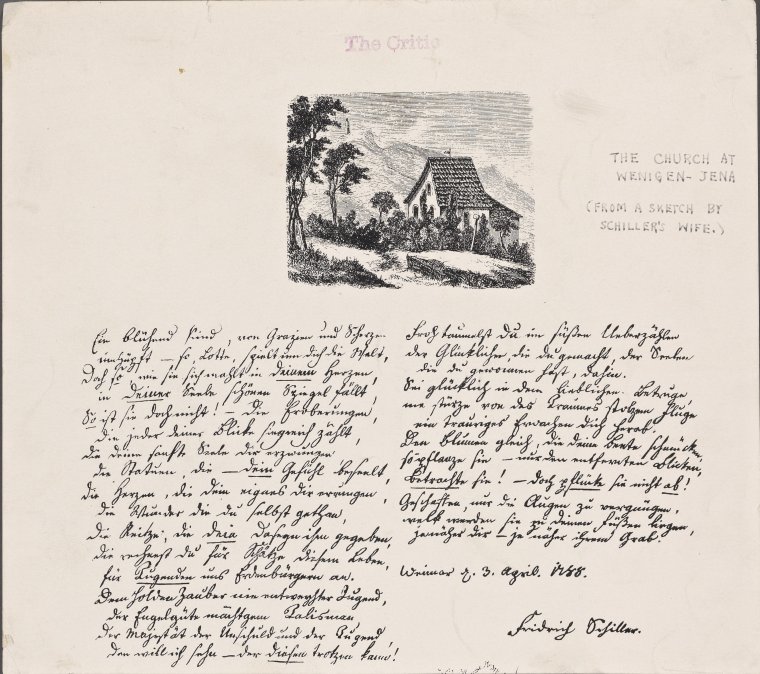 The Critic
THE CHURCH AT
WENIGEN-JENA
(FROM A SKETCH BY
SCHILLER'S WIFE.)
Ein blühend Kind, von Grazien und Scherzen
umhüpft — so, Lotte, spielt um dich die Welt,
Doch so wie sie sich mahlt in deinem Herzen
in deiner Seele schönen Spiegel fällt,
So ist sie doch nicht! — Die Eroberungen,
die jeder deiner Blicke siegreich zählt,
die deine sanfte Seele dir erzwungen
die Statuen, die — dein Gefühl beseelt,
die Herzen, die dein eignes dir errungen,
die Wunder die du selbst gethan,
die Reitze, die dein Daseyn ihm gegeben,
die rechnest du für Schätze diesem Leben,
für Tugenden uns Erdenbürgern an.
Dem holden Zauber nie entweyhter Jugend,
der Engelgüte mächtgem Talisman,
der Majestät der Unschuld und der Tugend,
den will ich sehn — der diesen trotzen kann!
Froh taumelst du im süßen Ueberzählen
der Glücklichen, die du gemacht, der Seelen
die du gewonnen hast, dahin.
Sei glücklich in dem lieblichen Betruge,
nie stürze von des Traumes stolzem Fluge
ein trauriges Erwachen dich herab.
Den Blumen gleich, die deine Beete schmücken,
so pflanze sie — nur den entfernten Blicken,
Betrachte sie! — doch pflücke sie nicht ab!
Geschaffen, nur die Augen zu vergnügen,
welk werden sie zu deinen Füßen liegen,
je näher dir — je näher ihrem Grab.
Weimar d. 3. April. 1788.
Fridrich Schiller.